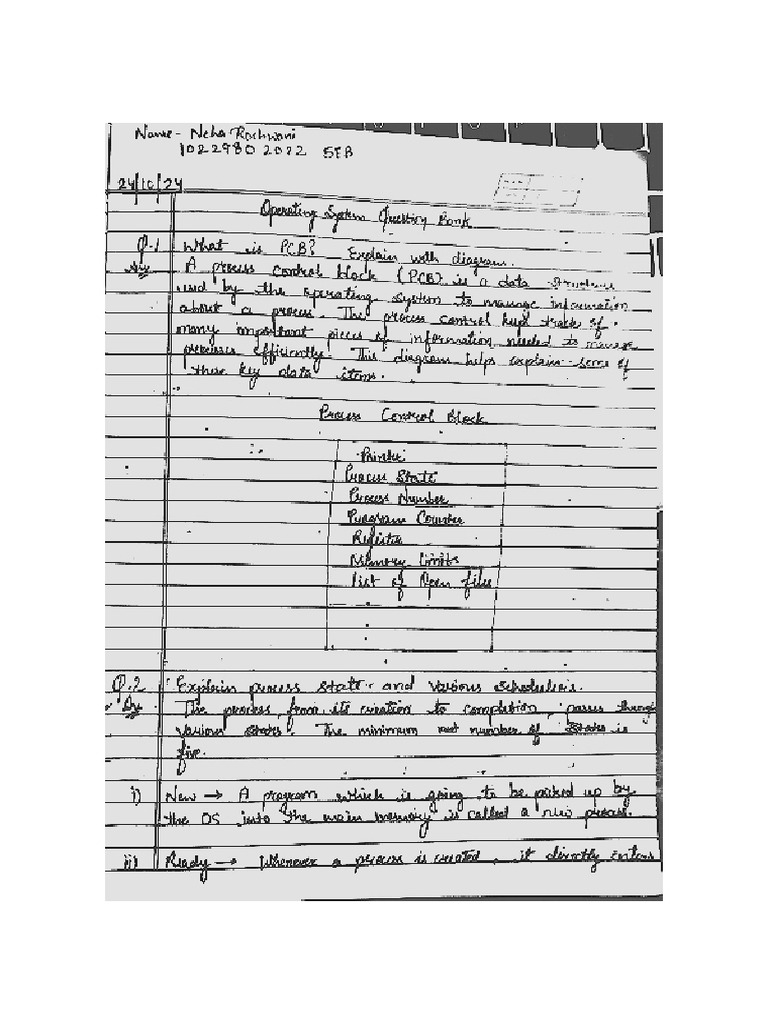 Name - Neha Rachwani
1022980 2022 SEB
24/10/24
Operating System Question Bank
Q.1 What is PCB? Explain with diagram.
Ans A process control block (PCB) is a data structure
used by the operating system to manage information
about a process. The process control kept track of
many important pieces of information needed to manage
processes efficiently. This diagram helps explain some of
these key data items.
Process Control Block
Pointer
Process State
Process Number
Program Counter
Register
Memory Limits
List of Open files
Q.2 Explain process state and various schedulers.
Ans The process, from its creation to completion, passes through
various states. The minimum number of states is
five.
i) New → A program which is going to be picked up by
the OS into the main memory is called a new process.
ii) Ready → Whenever a process is created, it directly enters